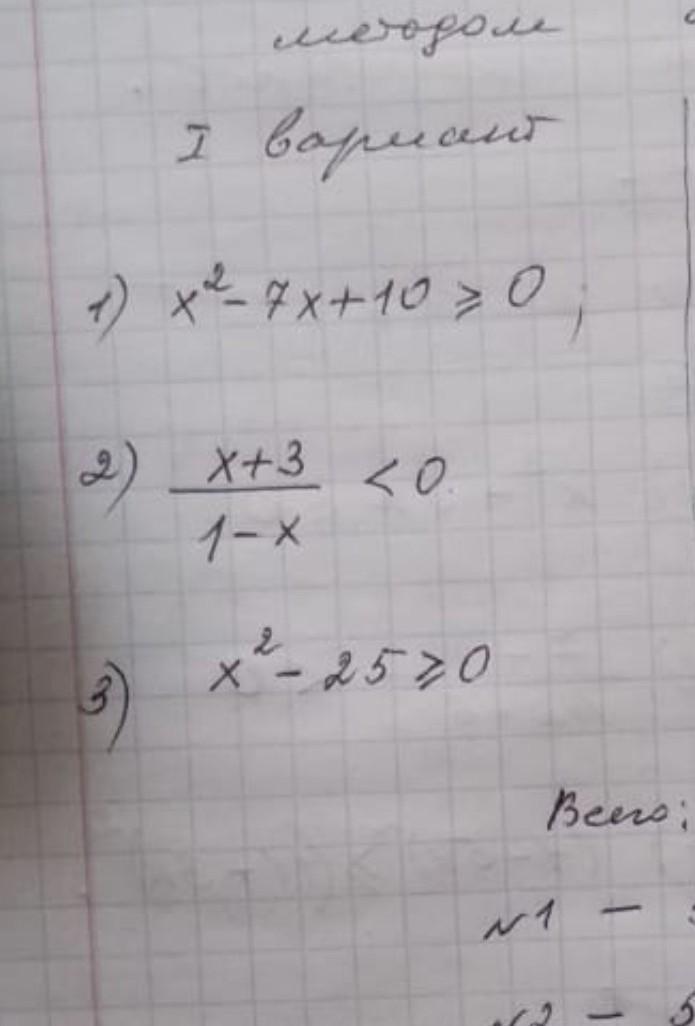 методом
I вариант
1) x²- 7x+10 ⩾ 0 ;
2) x+3
1-x < 0
3) x²- 25 ⩾ 0
Всего:
N1 —
N2 — 5